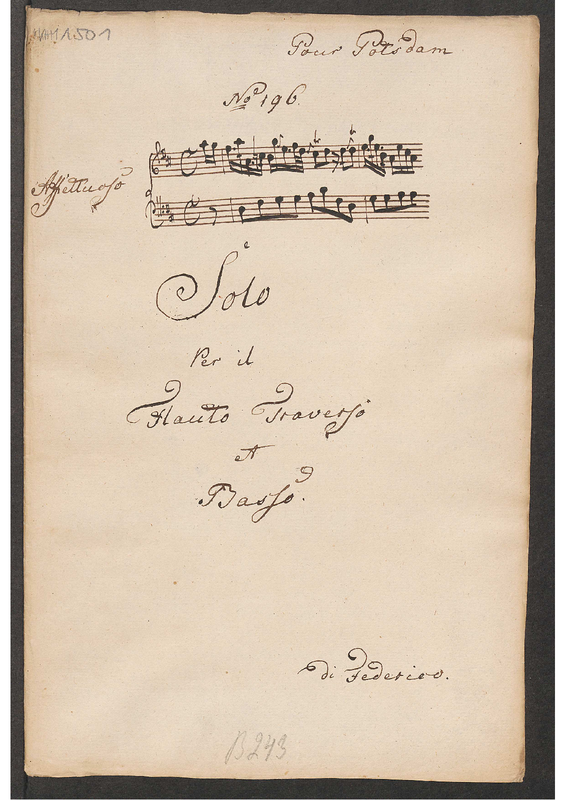 Pour Potsdam
No 196.
Affettuoso
Solo
Per il
Flauto Traverso
et
Basso.
di Federico.
B243